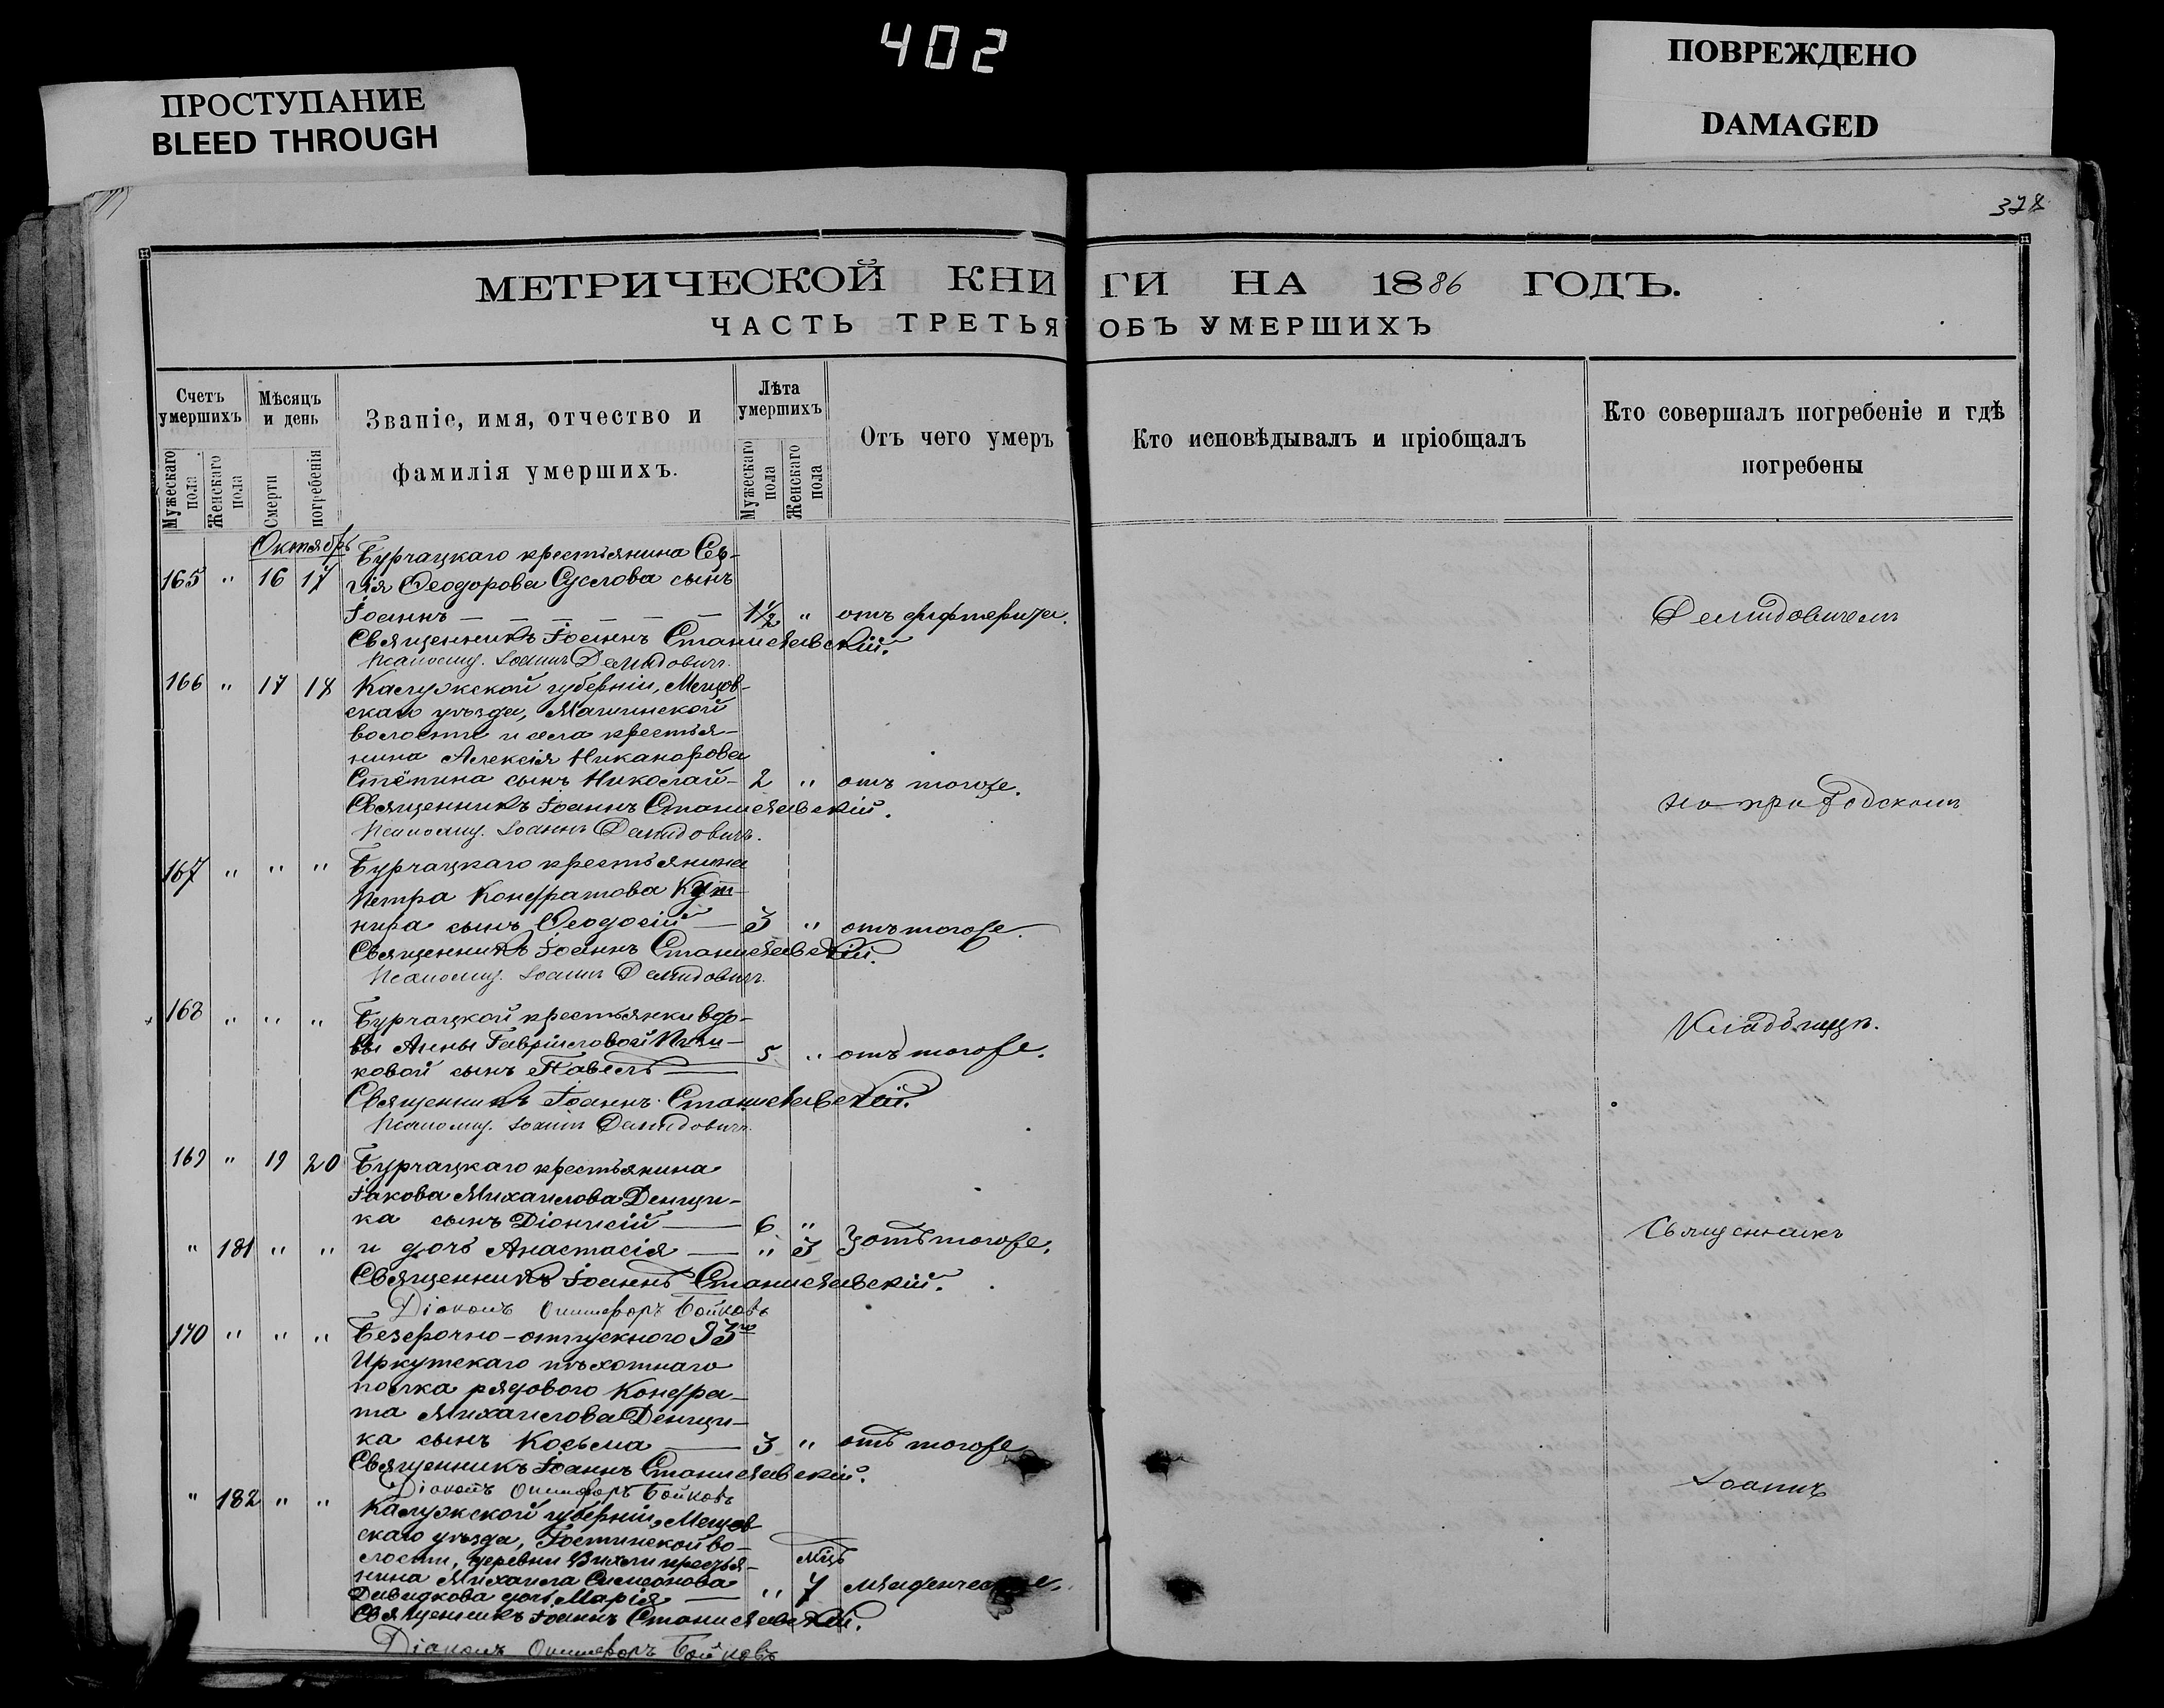 402
ПРОСТУПАНИЕ
BLEED THROUGH
ПОВРЕЖДЕНО
DAMAGED
378
МЕТРИЧЕСКОЙ КНИГИ НА 1886 ГОДЪ.
ЧАСТЬ ТРЕТЬЯ ОБЪ УМЕРШИХЪ
Счетъ умершихъ
Мужескаго пола
Женскаго пола
Мѣсяцъ и день
Смерти
погребенія
Званіе, имя, отчество и
фамилія умершихъ.
Лѣта умершихъ
Мужескаго пола
Женскаго пола
Отъ чего умеръ
Кто исповѣдывалъ и пріобщалъ
Кто совершалъ погребеніе и гдѣ
погребены
Октябрь
Бурчацкаго крестьянина Сер-
165 " 16 17 гія Ѳеодорова Суслова сынъ
Іоаннъ — — — — — 1½ " отъ дифтерита.
Священникъ Іоаннъ Станиславскій.
Псаломщ. Іоаннъ Демидовичъ.
166 " 17 18 Калужской губерніи, Мещов-
скаго уѣзда,
волости и села крестья-
нина Алексія Никанорова
Стёпина сынъ Николай — 2 " отъ тогоже.
Священникъ Іоаннъ Станиславскій.
Псаломщ. Іоаннъ Демидовичъ.
167 " " " Бурчацкаго крестьянина
Петра Кондратова
сынъ Ѳеодосій — 3 " отъ тогоже.
Священникъ Іоаннъ Станиславскій.
Псаломщ. Іоаннъ Демидовичъ.
168 " " " Бурчацкой крестьянки вдо-
вы Анны Гавріиловой
ковой сынъ Павелъ — 5 " отъ тогоже.
Священникъ Іоаннъ Станиславскій.
Псаломщ. Іоаннъ Демидовичъ.
169 " 19 20 Бурчацкаго крестьянина
Іакова Михаилова Денщи-
ка сынъ Діонисій — 6 "
" 181 " " и дочь Анастасія — " 3 } отъ тогоже.
Священникъ Іоаннъ Станиславскій.
Діаконъ Онисифоръ Бойковъ
170 " " " Безсрочно-отпускного 93го
Иркутскаго пѣхотнаго
полка рядового Кондра-
та Михаилова Денщи-
ка сынъ Косьма — 3 " отъ тогоже
Священникъ Іоаннъ Станиславскій.
Діаконъ Онисифоръ Бойковъ
" 182 " " Калужской губерніи, Мещов-
скаго уѣзда, во-
лости, деревни крестья- мцъ
нина Михаила Симеонова
Давидкова дочь Марія — " 7 младенческ
Священникъ Іоаннъ Станиславскій.
Діаконъ Онисифоръ Бойковъ
Демидовичемъ
на приходскомъ
Кладбищѣ.
Священникъ
Іоаннъ